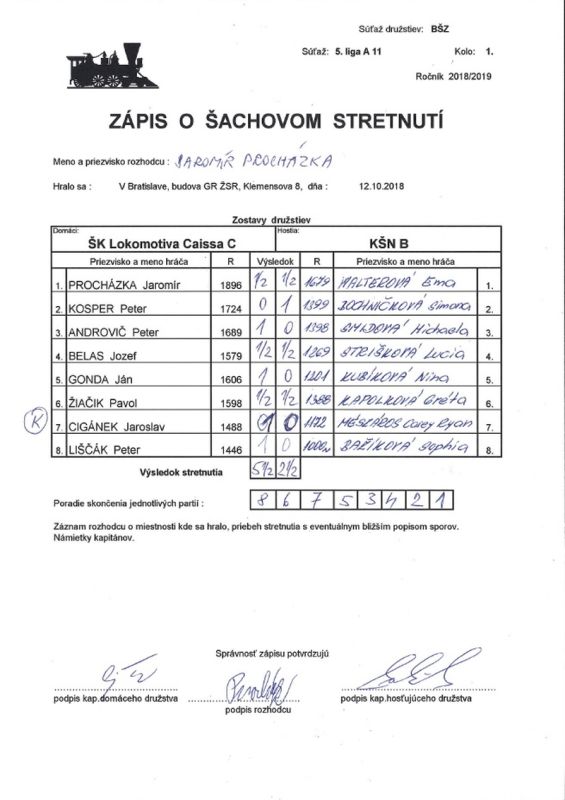 Súťaž družstiev: BŠZ
Súťaž: 5. liga A 11 Kolo: 1.
Ročník 2018/2019
ZÁPIS O ŠACHOVOM STRETNUTÍ
Meno a priezvisko rozhodcu : JAROMÍR PROCHÁZKA
Hralo sa : V Bratislave, budova GR ŽSR, Klemensova 8, dňa : 12.10.2018
Zostavy družstiev
Domáci: Hostia:
ŠK Lokomotiva Caissa C KŠN B
Priezvisko a meno hráča R Výsledok R Priezvisko a meno hráča
1. PROCHÁZKA Jaromír 1896 1/2 1/2 1679 WALTEROVÁ Ema 1.
2. KOSPER Peter 1724 0 1 1399 BOCHNIČKOVÁ Simona 2.
3. ANDROVIČ Peter 1689 1 0 1398 Michaela 3.
4. BELAS Jozef 1579 1/2 1/2 1269 STRIŠKOVÁ Lucia 4.
5. GONDA Ján 1606 1 0 1201 KUBÍKOVÁ Nina 5.
6. ŽIAČIK Pavol 1598 1/2 1/2 1388 KAPOLKOVÁ Gréta 6.
K 7. CIGÁNEK Jaroslav 1488 1 0 1172 MÉSZÁROS Corey Ryan 7.
8. LIŠČÁK Peter 1446 1 0 1000 BAŽÍKOVÁ Sophia 8.
Výsledok stretnutia 5 1/2 2 1/2
Poradie skončenia jednotlivých partií : 8 6 7 5 3 4 2 1
Záznam rozhodcu o miestnosti kde sa hralo, priebeh stretnutia s eventuálnym bližším popisom sporov.
Námietky kapitánov.
Správnosť zápisu potvrdzujú
podpis kap.domáceho družstva podpis rozhodcu podpis kap.hosťujúceho družstva